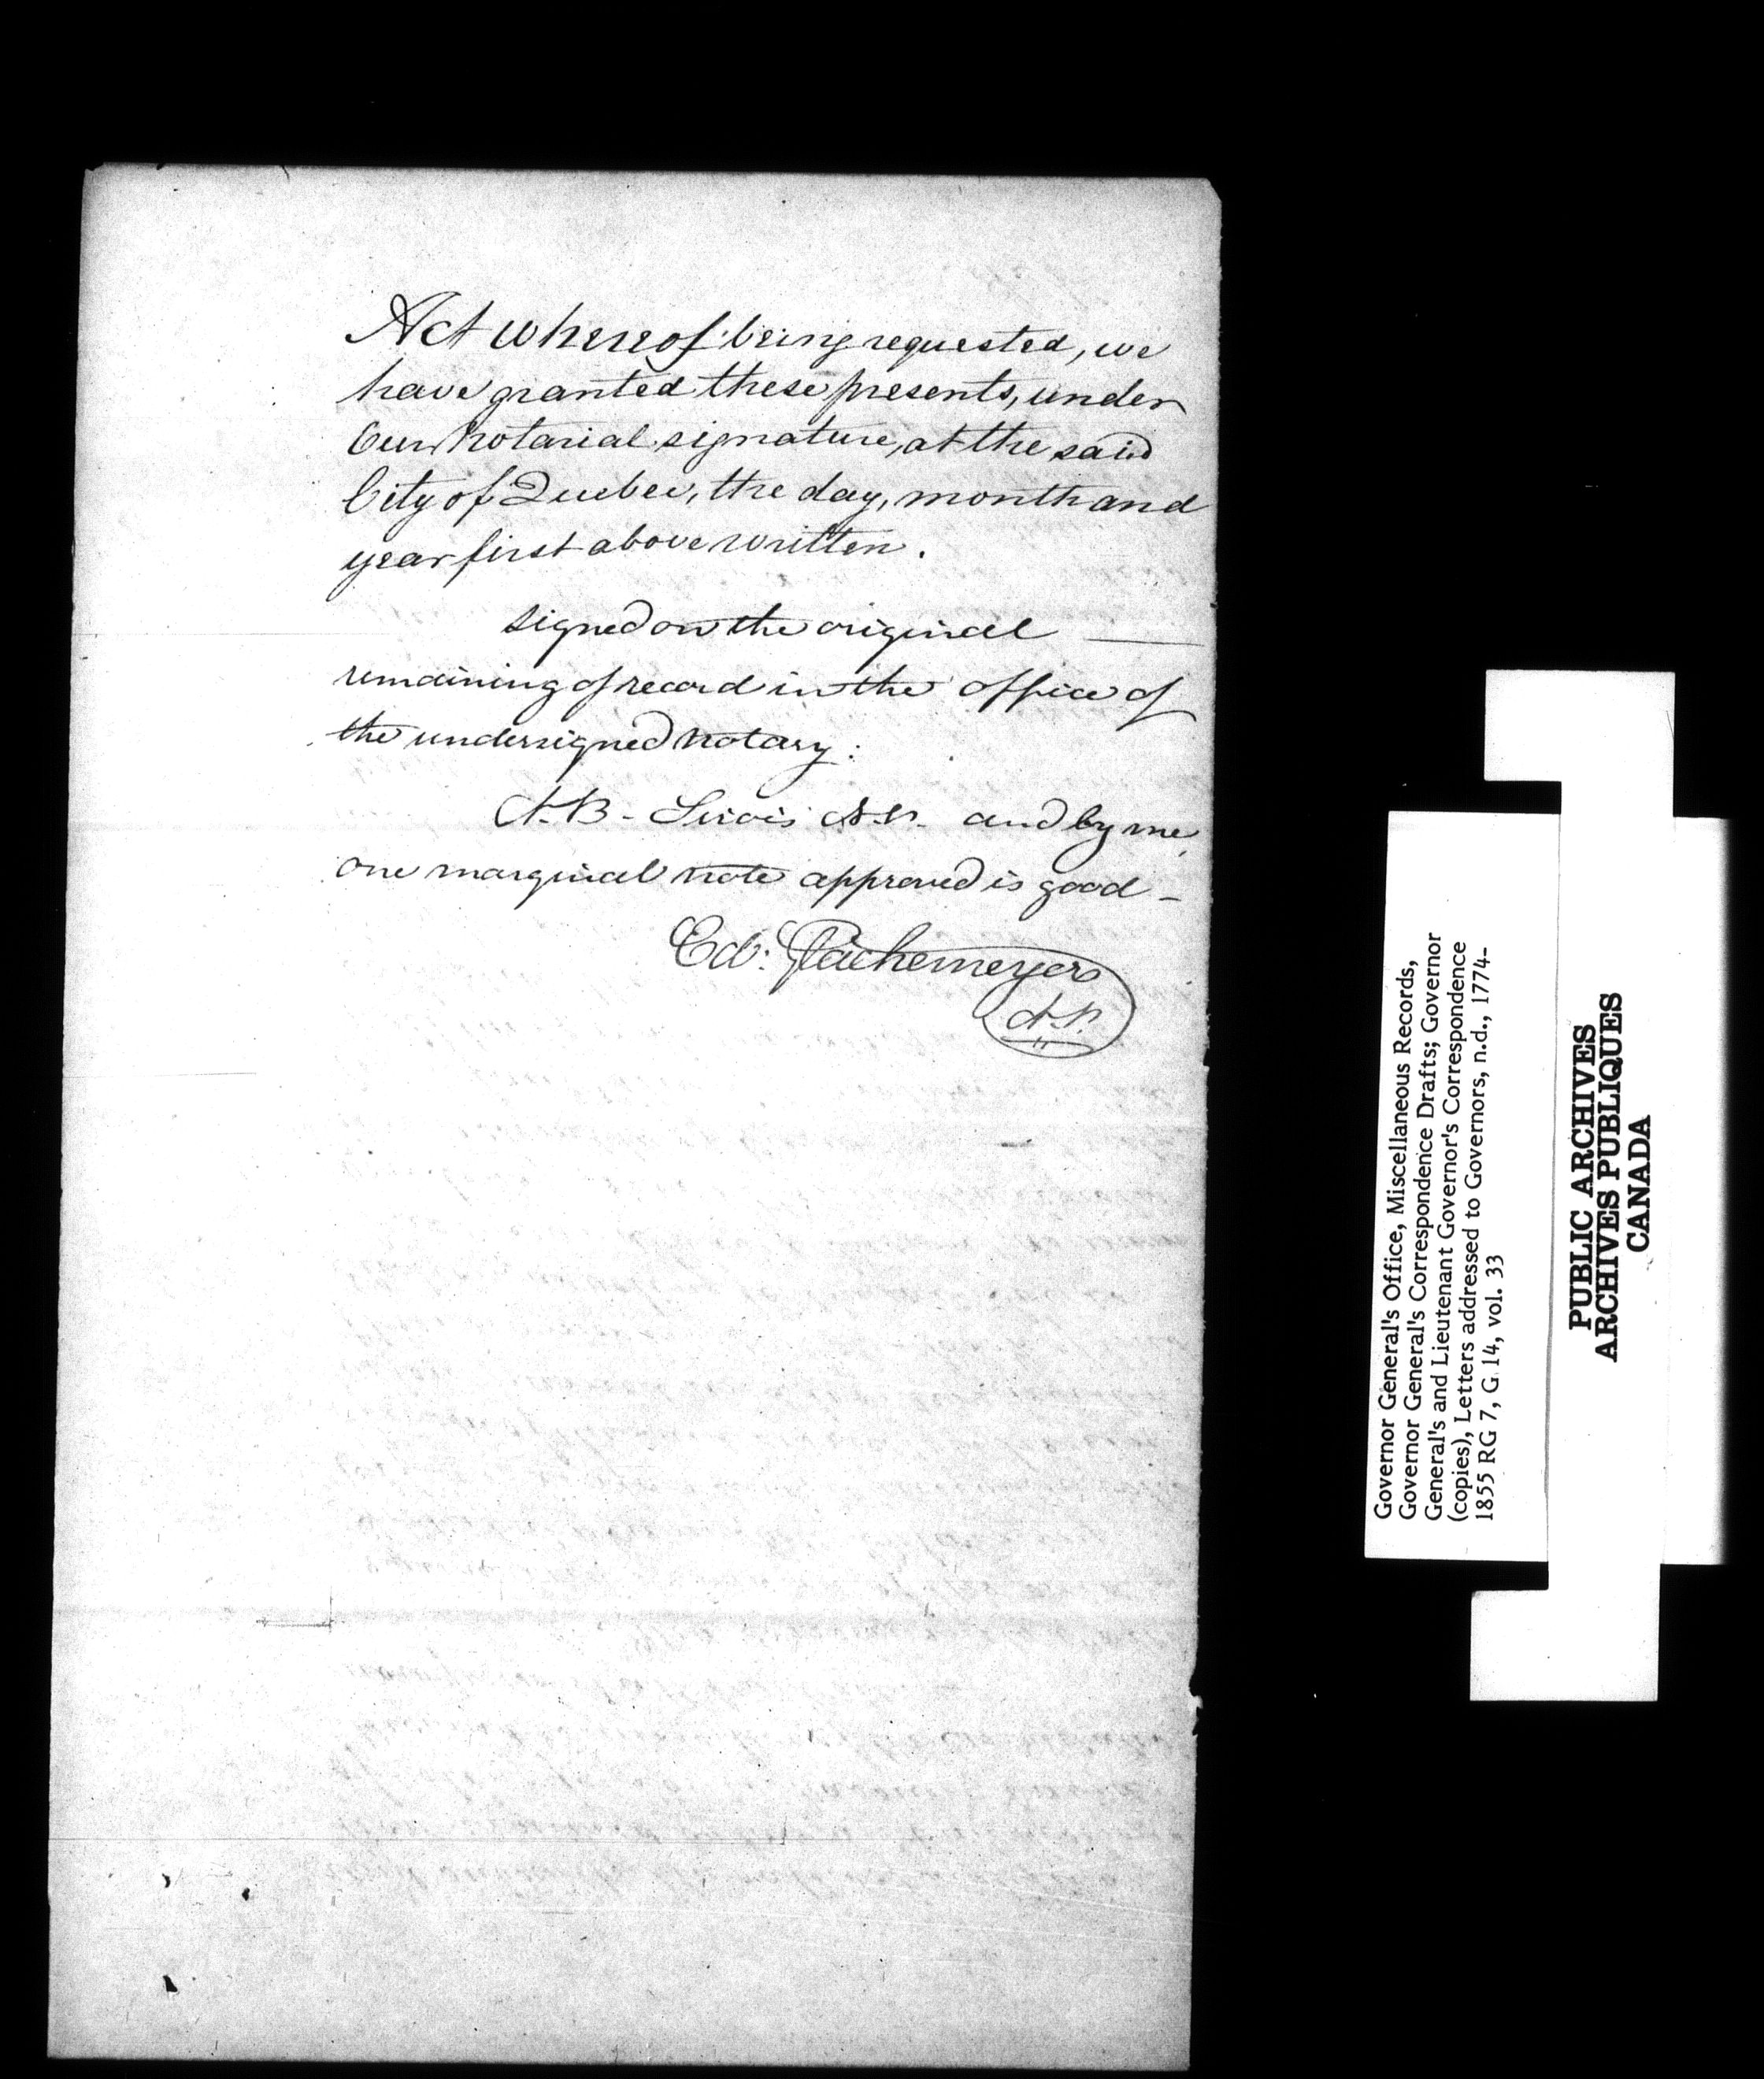 Act whereof being requested, we
have granted these presents, under
Our Notarial signature, at the said
City of Quebec, the day, month and
year first above written.
signed on the original
remaining of record in the office of
the undersigned notary:
A. B. Sirois N.P. and by me,
one marginal note approved is good –
Ed: Glackemeyer
N.P.
Governor General's Office, Miscellaneous Records,
Governor General's Correspondence Drafts; Governor
General's and Lieutenant Governor's Correspondence
(copies), Letters addressed to Governors, n.d., 1774-
1855 RG 7, G 14, vol. 33
PUBLIC ARCHIVES
ARCHIVES PUBLIQUES
CANADA